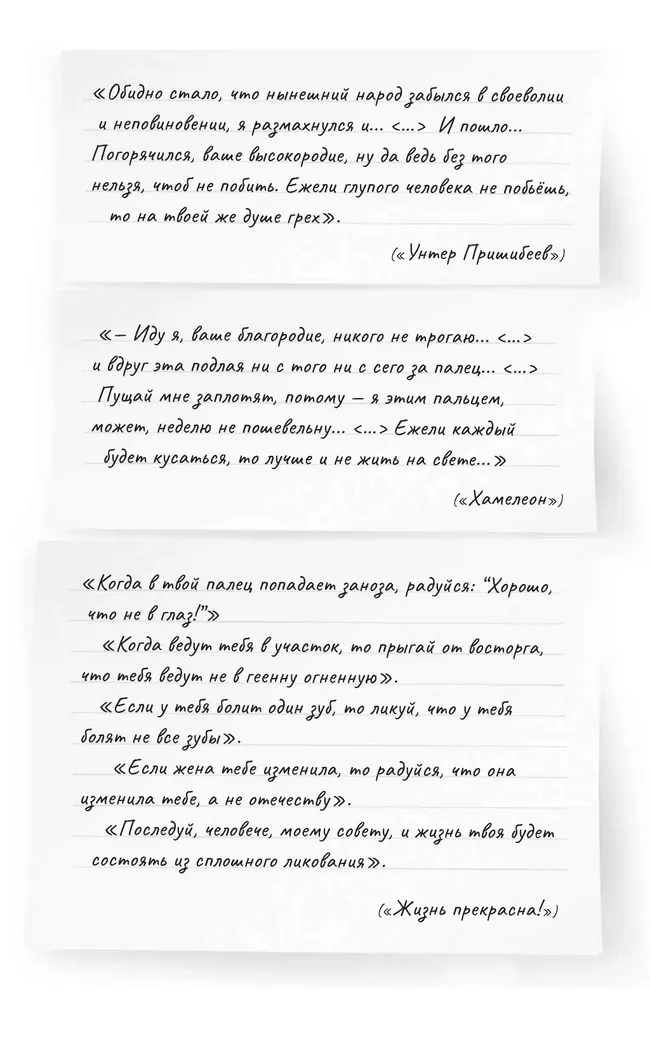 «Обидно стало, что нынешний народ забылся в своеволии
и неповиновении, я размахнулся и... <...> И пошло...
Погорячился, ваше высокородие, ну да ведь без того
нельзя, чтоб не побить. Ежели глупого человека не побьёшь,
то на твоей же душе грех».
(«Унтер Пришибеев»)
«– Иду я, ваше благородие, никого не трогаю... <...>
и вдруг эта подлая ни с того ни с сего за палец... <...>
Пущай мне заплотят, потому – я этим пальцем,
может, неделю не пошевельну... <...> Ежели каждый
будет кусаться, то лучше и не жить на свете...»
(«Хамелеон»)
«Когда в твой палец попадает заноза, радуйся: “Хорошо,
что не в глаз!”»
«Когда ведут тебя в участок, то прыгай от восторга,
что тебя ведут не в геенну огненную».
«Если у тебя болит один зуб, то ликуй, что у тебя
болят не все зубы».
«Если жена тебе изменила, то радуйся, что она
изменила тебе, а не отечеству».
«Последуй, человече, моему совету, и жизнь твоя будет
состоять из сплошного ликования».
(«Жизнь прекрасна!»)